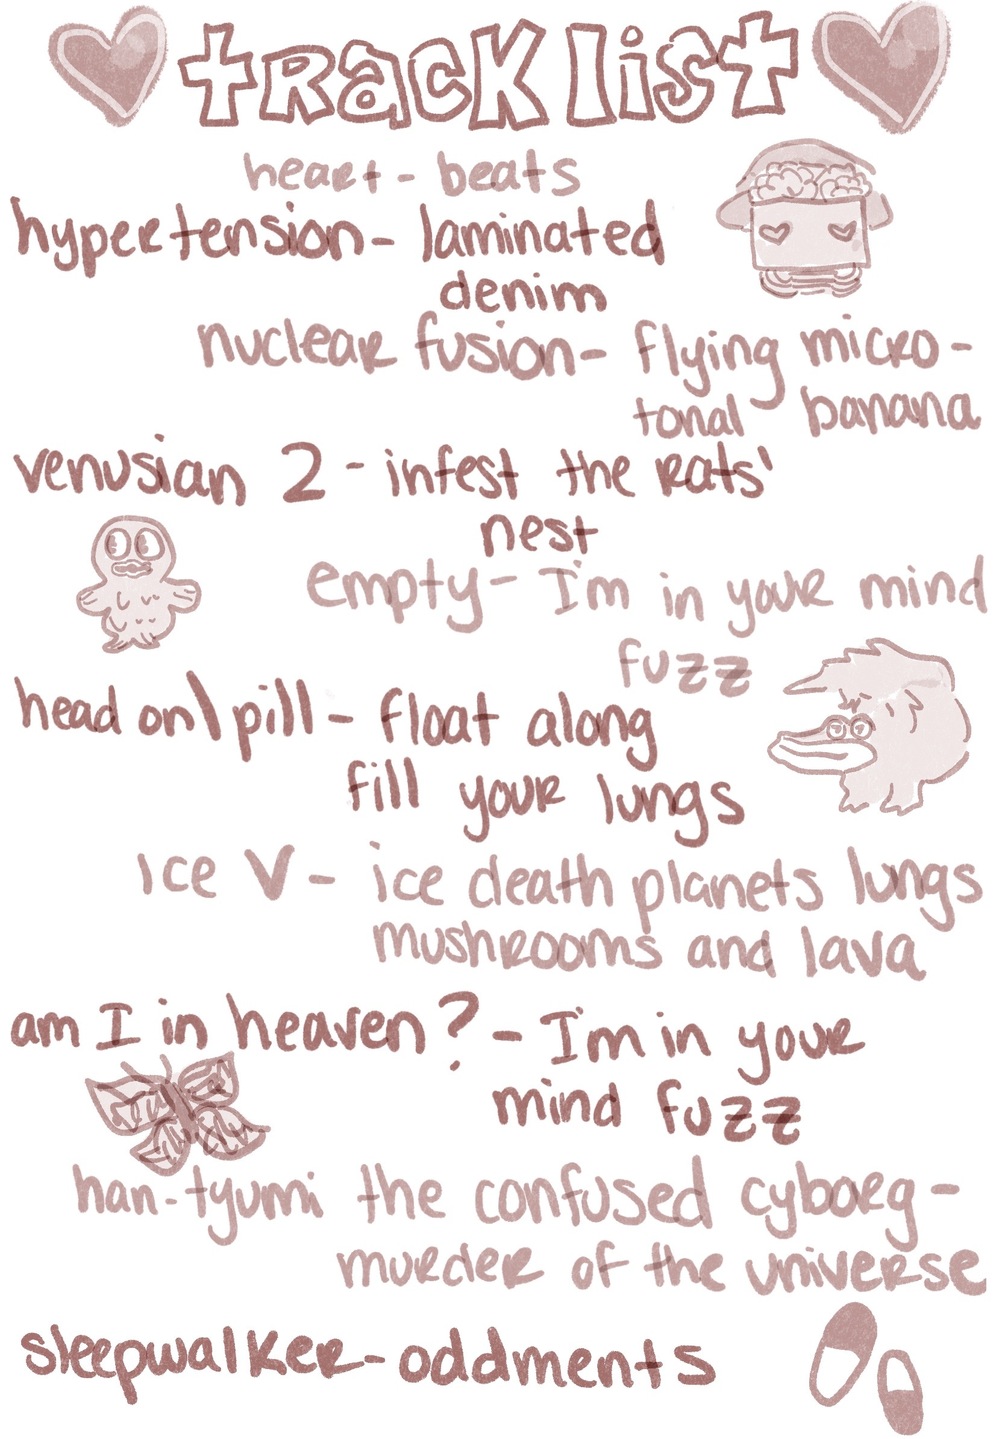 track list
heart - beats
hypertension - laminated
denim
nuclear fusion - flying micro-
tonal banana
venusian 2 - infest the rats'
nest
empty - I'm in your mind
fuzz
head on\pill - float along
fill your lungs
Ice V - ice death planets lungs
mushrooms and lava
am I in heaven? - I'm in your
mind fuzz
han-tyumi the confused cyborg -
murder of the universe
sleepwalker - oddments